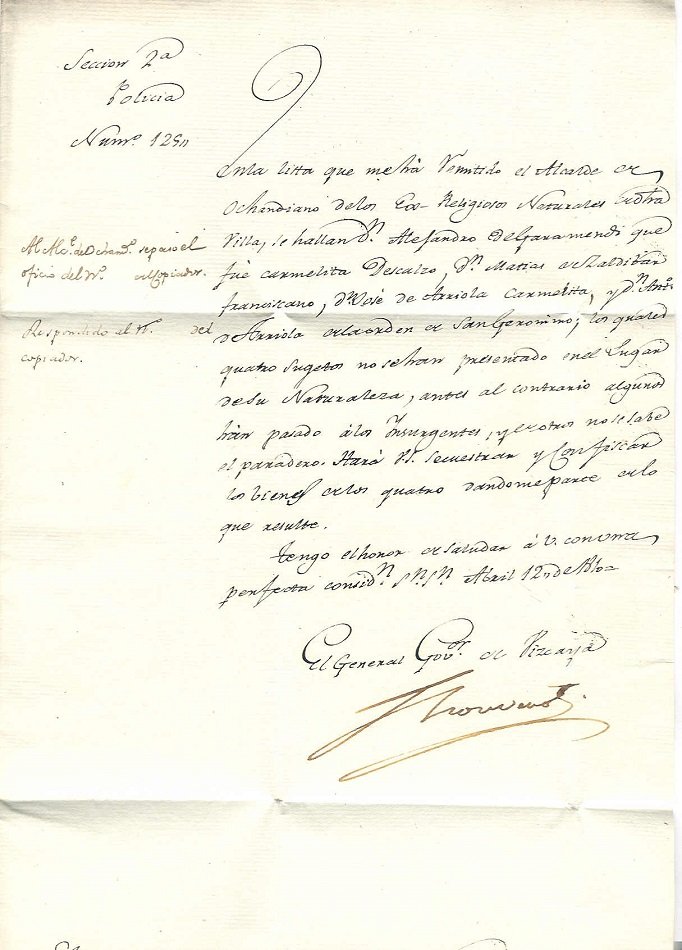 Seccion 2ª
Policia
Numº. 1290
En la lista que me há remitido el Alcalde de
Ochandiano de los Exº- Religiosos Naturales de dha
Villa, se hallan Dn. Alejandro de Garamendi que
fue carmelita Descalzo, Dn. Matias de Zaldivar
franciscano, Dn. José de Arriola Carmelita, y Dn. Antº
de Arriola de la orden de San Geronimo; los quales
quatro sugetos no se han presentado en el Lugar
de su Naturaleza, antes al contrario algunos
hán pasado á los Insurgentes, y de otros no se sabe
el paradero. Hará V. secuestrar y Confiscar
los bienes de los quatro dandome parte de lo
que resulte.
Tengo el honor de saludar á V. con una
perfecta considn. Abril 12 de
El General Govor. de Vizcaya
Thouvenot
Al Alce. de Ochandº. se pasó el
oficio del Nº. del Copiador.
Respondido al Nº. del
copiador.